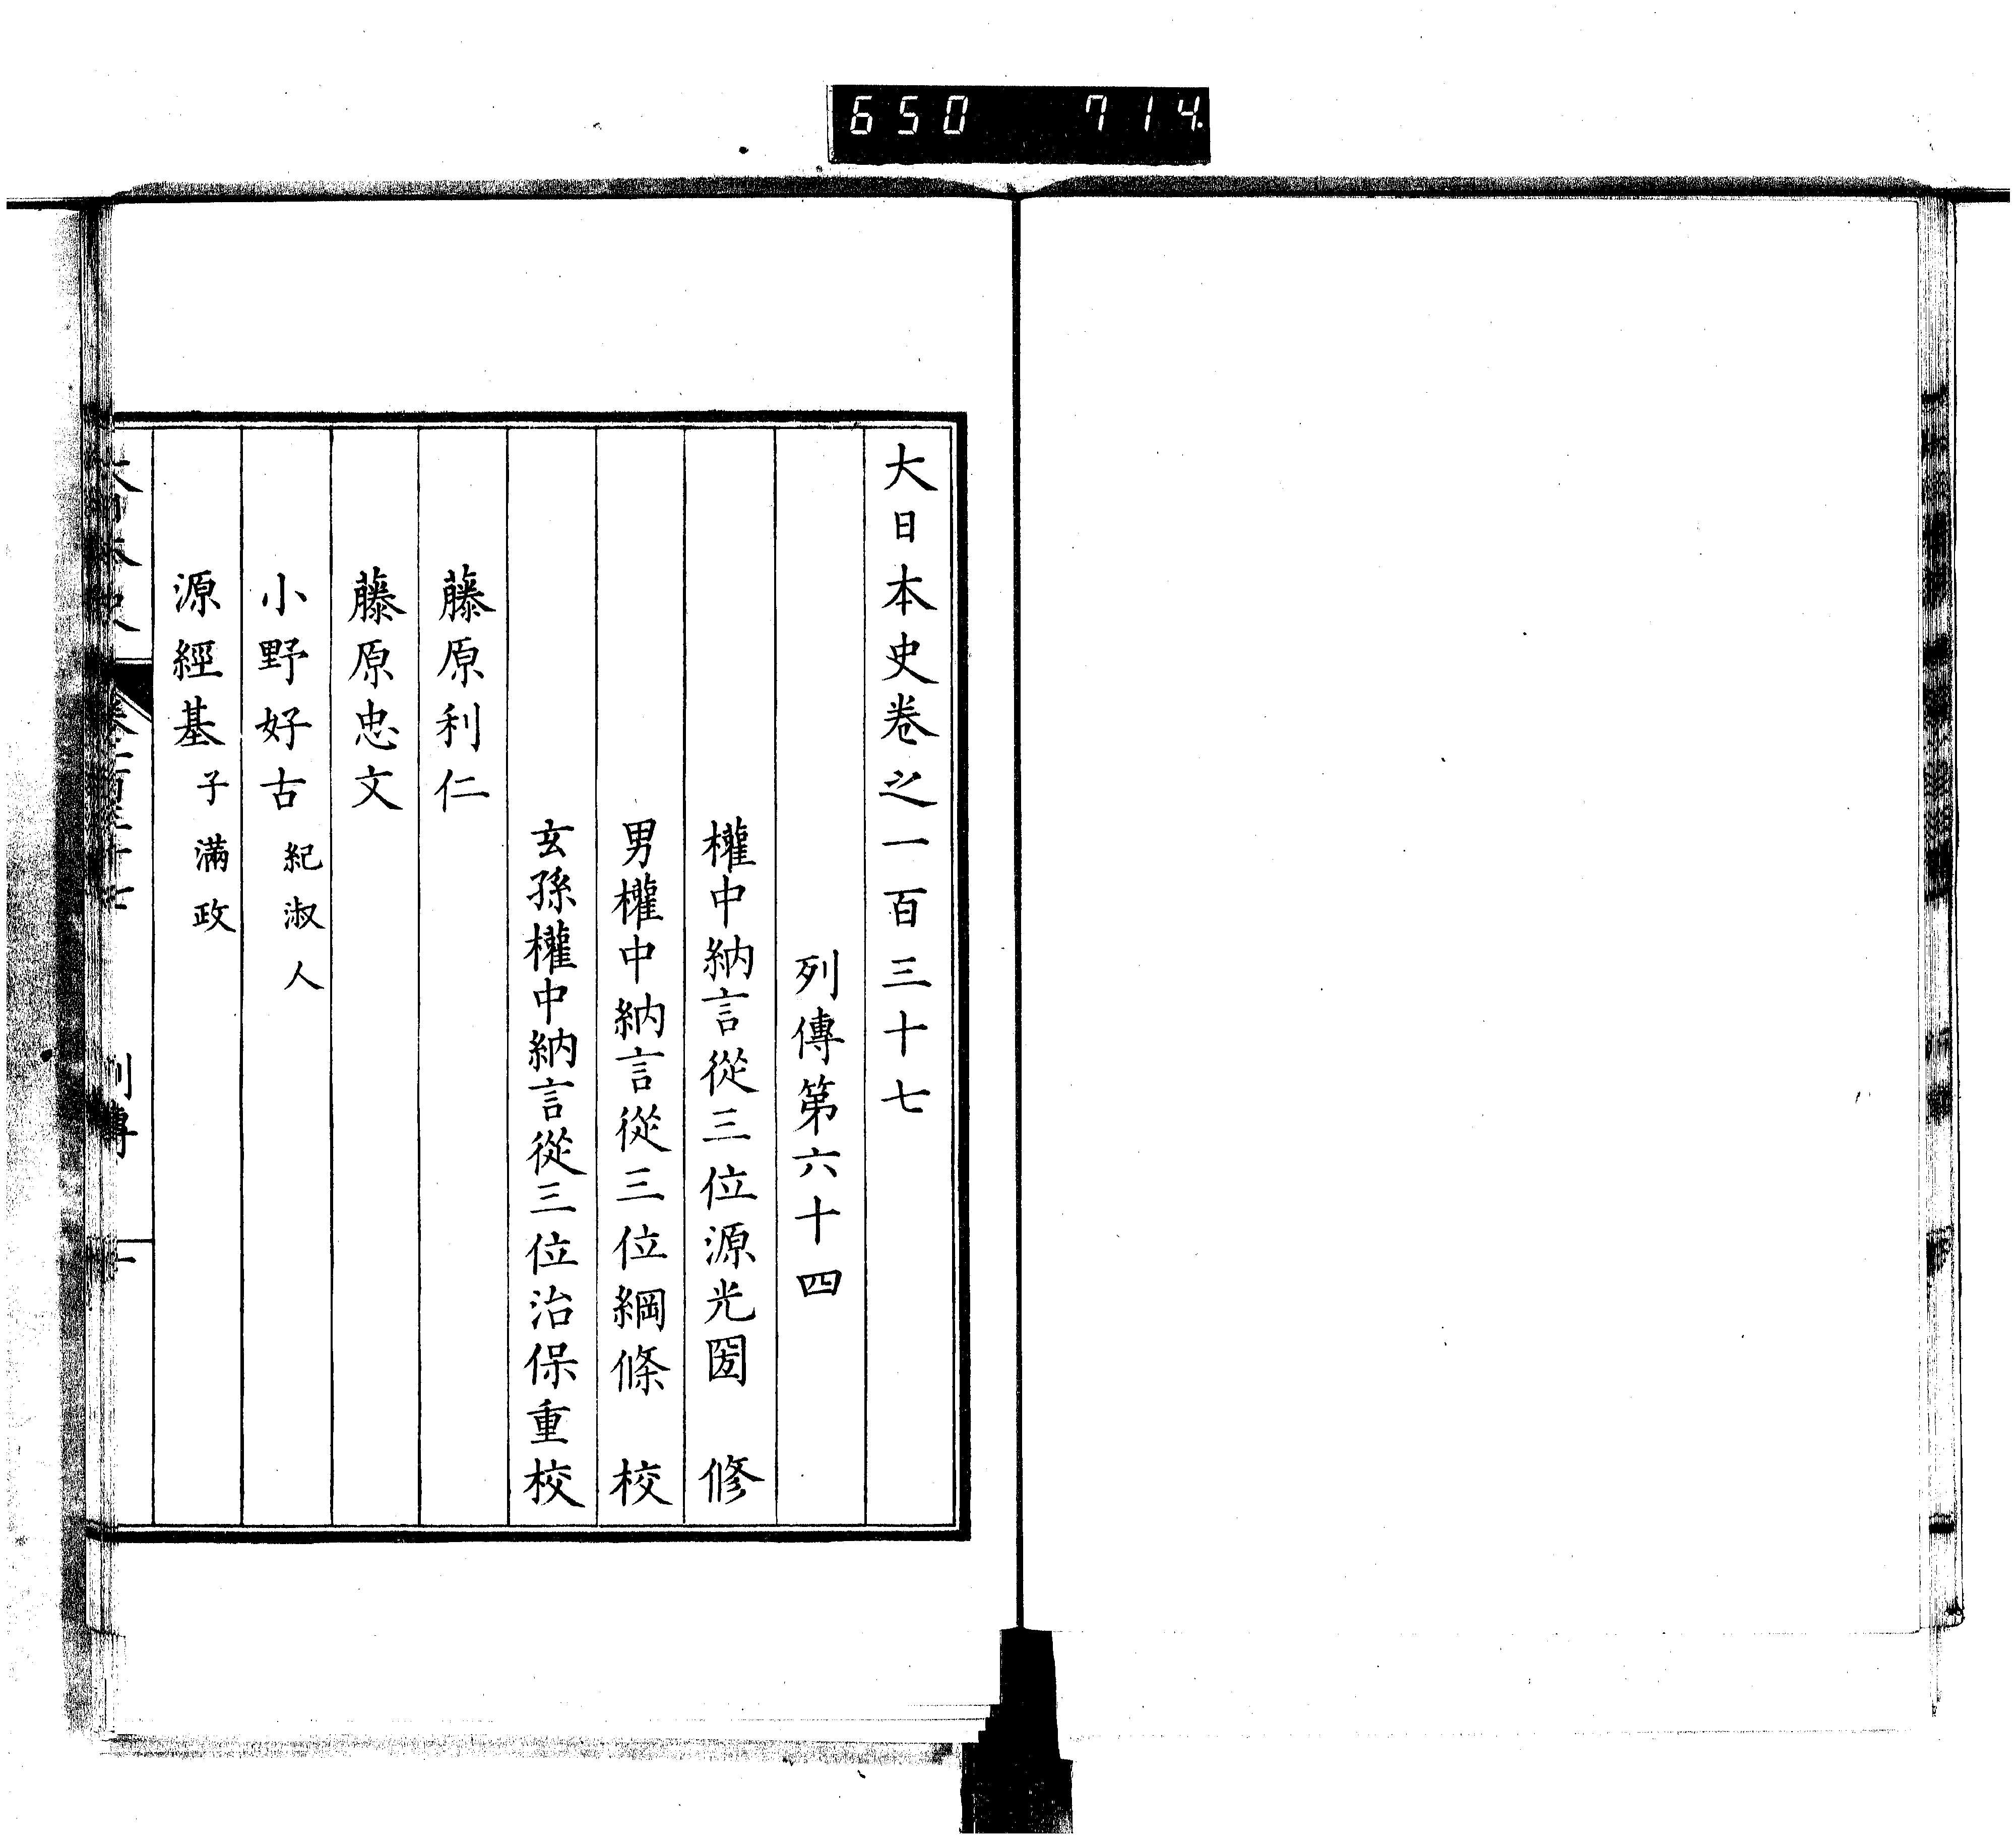 650 714
大日本史卷之一百三十七
列傳第六十四
權中納言從三位源光圀 修
男權中納言從三位綱條 校
玄孫權中納言從三位治保重校
藤原利仁
藤原忠文
小野好古 紀淑人
源經基 子滿政